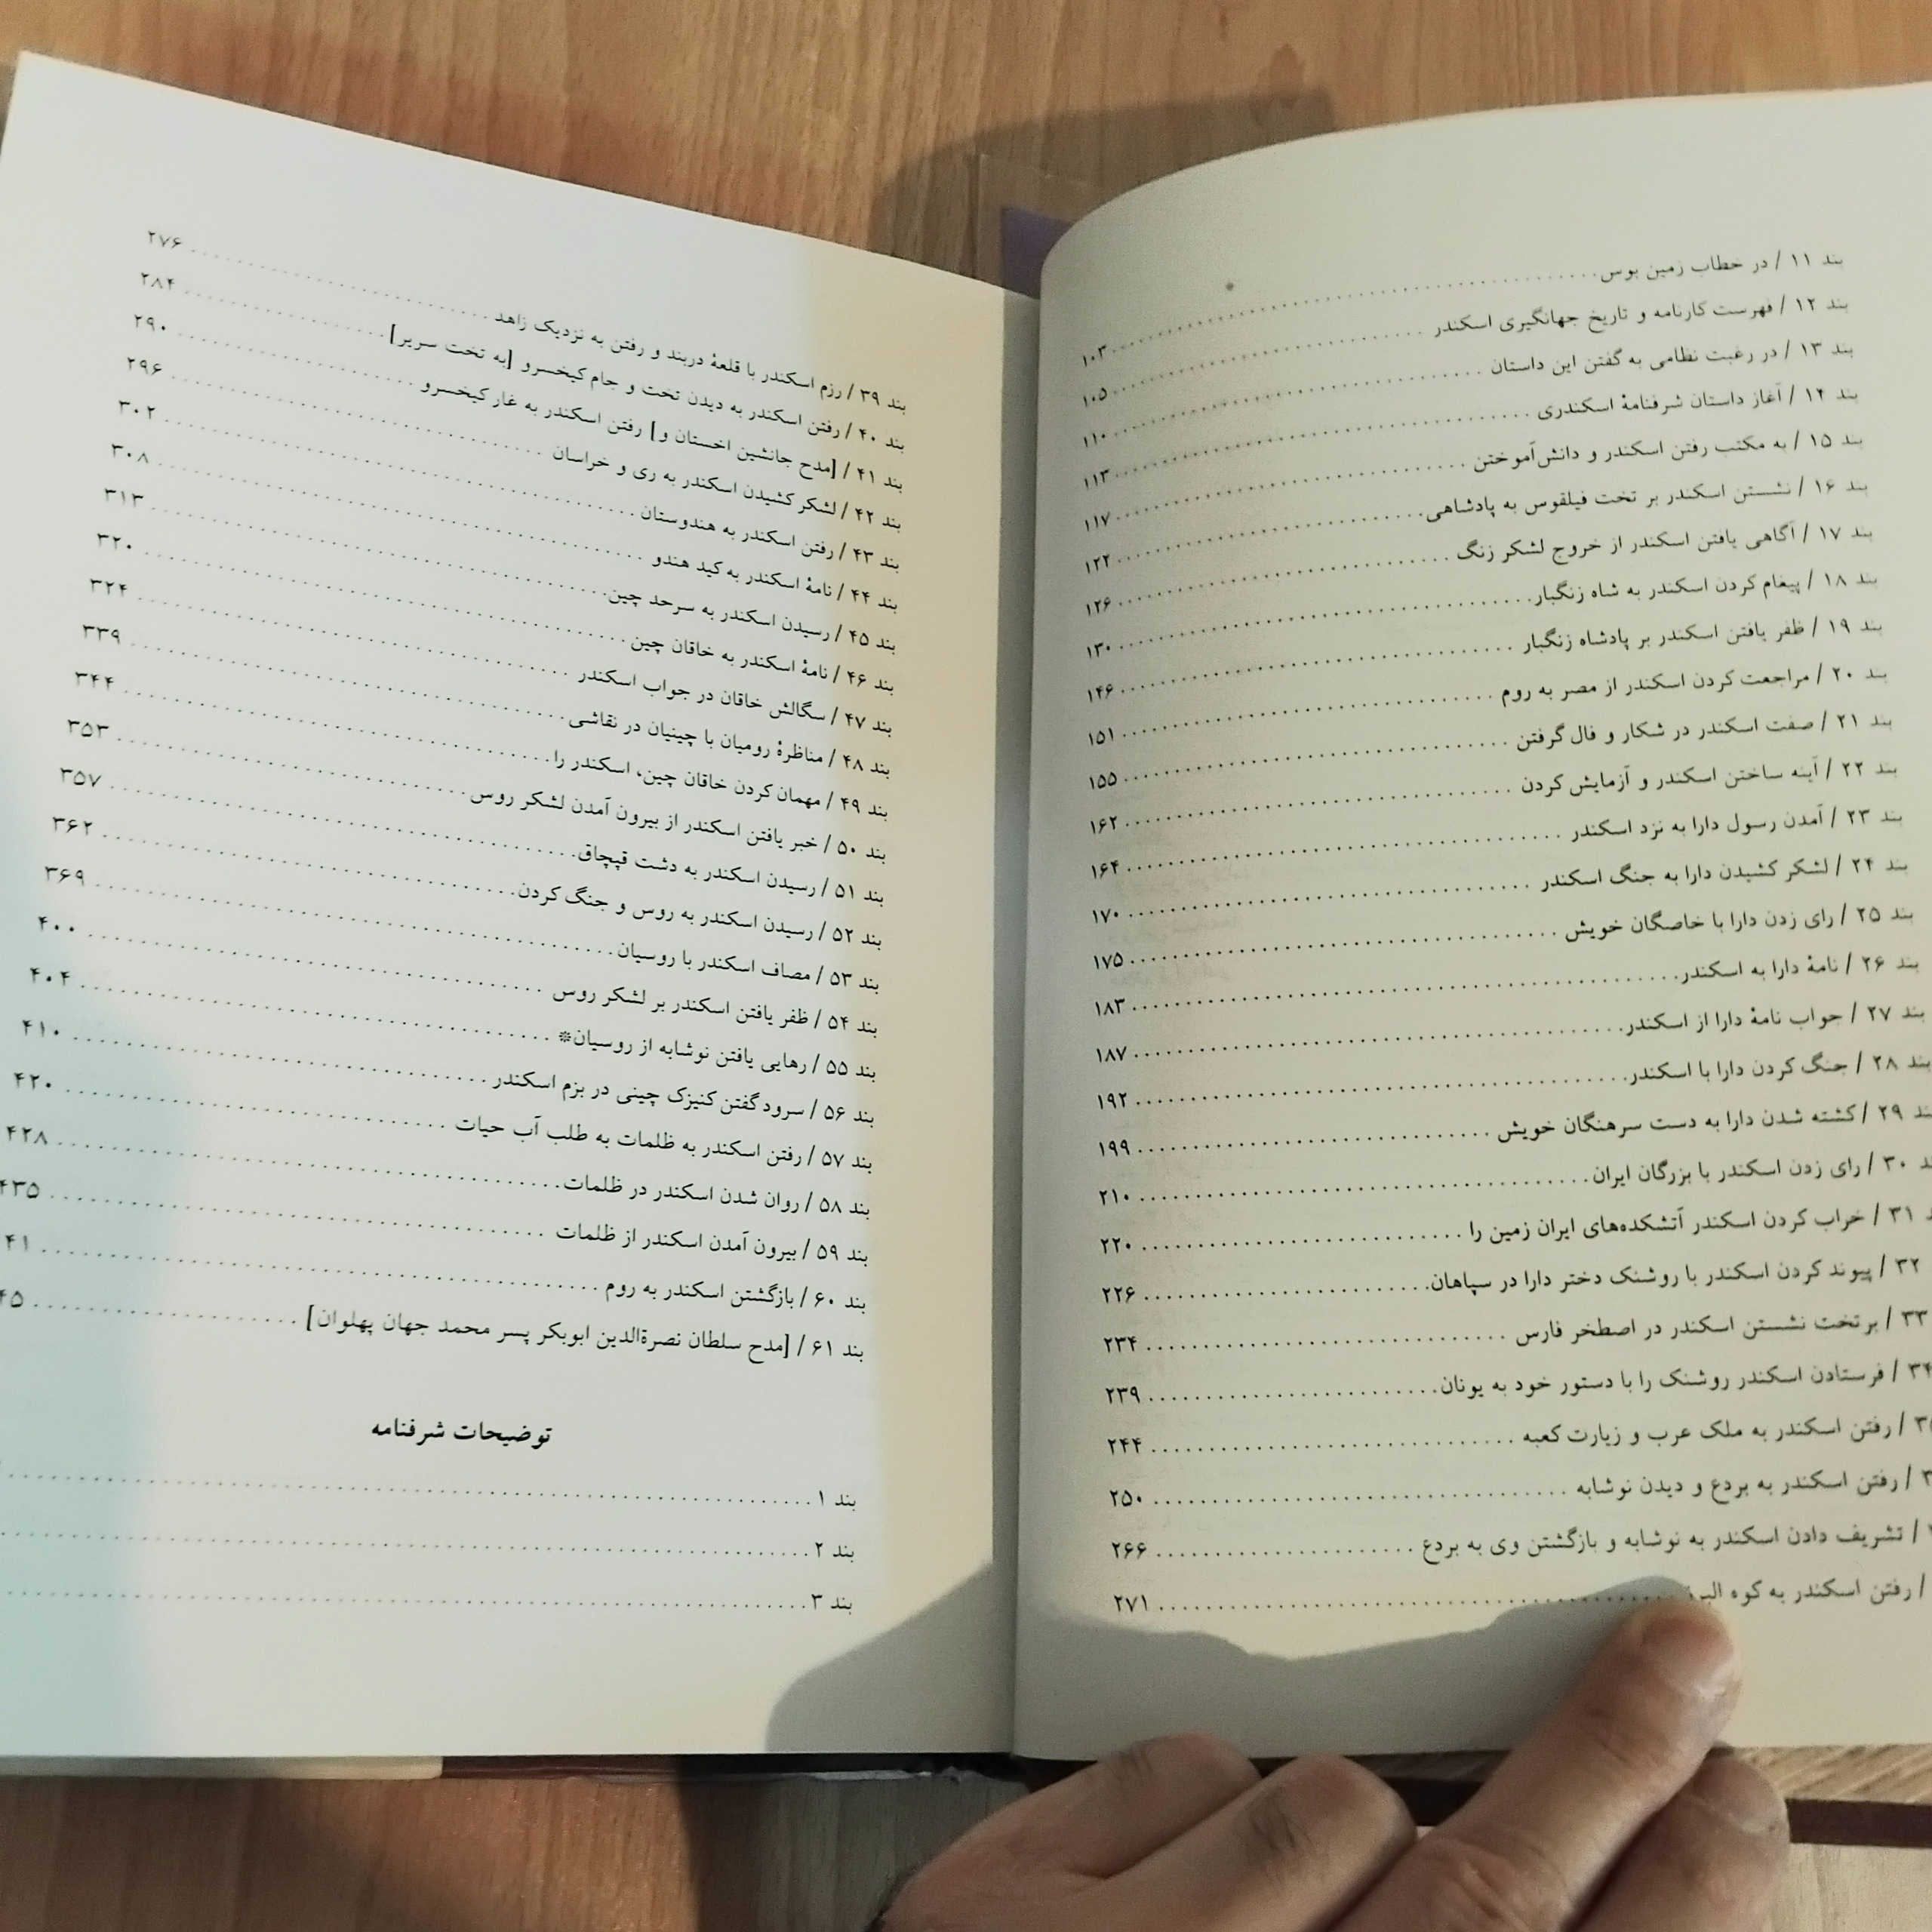 بند ۱۱ / در خطاب زمین بوس ........ ۱۰۳
بند ۱۲ / فهرست کارنامه و تاریخ جهانگیری اسکندر ........ ۱۰۵
بند ۱۳ / در رغبت نظامی به گفتن این داستان ........ ۱۱۰
بند ۱۴ / آغاز داستان شرفنامهٔ اسکندری ........ ۱۱۳
بند ۱۵ / به مکتب رفتن اسکندر و دانش‌آموختن ........ ۱۱۷
بند ۱۶ / نشستن اسکندر بر تخت فیلقوس به پادشاهی ........ ۱۲۲
بند ۱۷ / آگاهی یافتن اسکندر از خروج لشکر زنگ ........ ۱۲۶
بند ۱۸ / پیغام کردن اسکندر به شاه زنگبار ........ ۱۳۰
بند ۱۹ / ظفر یافتن اسکندر بر پادشاه زنگبار ........ ۱۴۶
بند ۲۰ / مراجعت کردن اسکندر از مصر به روم ........ ۱۵۱
بند ۲۱ / صفت اسکندر در شکار و فال گرفتن ........ ۱۵۵
بند ۲۲ / آینه ساختن اسکندر و آزمایش کردن ........ ۱۶۲
بند ۲۳ / آمدن رسول دارا به نزد اسکندر ........ ۱۶۴
بند ۲۴ / لشکر کشیدن دارا به جنگ اسکندر ........ ۱۷۰
بند ۲۵ / رای زدن دارا با خاصگان خویش ........ ۱۷۵
بند ۲۶ / نامهٔ دارا به اسکندر ........ ۱۸۳
بند ۲۷ / جواب نامهٔ دارا از اسکندر ........ ۱۸۷
بند ۲۸ / جنگ کردن دارا با اسکندر ........ ۱۹۲
بند ۲۹ / کشته شدن دارا به دست سرهنگان خویش ........ ۱۹۹
۳۰ / رای زدن اسکندر با بزرگان ایران ........ ۲۱۰
۳۱ / خراب کردن اسکندر آتشکده‌های ایران زمین را ........ ۲۲۰
۳۲ / پیوند کردن اسکندر با روشنک دختر دارا در سپاهان ........ ۲۲۶
۳۳ / بر تخت نشستن اسکندر در اصطخر فارس ........ ۲۳۴
۳۴ / فرستادن اسکندر روشنک را با دستور خود به یونان ........ ۲۳۹
/ رفتن اسکندر به ملک عرب و زیارت کعبه ........ ۲۴۴
/ رفتن اسکندر به بردع و دیدن نوشابه ........ ۲۵۰
/ تشریف دادن اسکندر به نوشابه و بازگشتن وی به بردع ........ ۲۶۶
/ رفتن اسکندر به کوه البرز ........ ۲۷۱
بند ۳۹ / رزم اسکندر با قلعهٔ دربند و رفتن به نزدیک زاهد ........ ۲۷۶
بند ۴۰ / رفتن اسکندر به دیدن تخت و جام کیخسرو [به تخت سریر] ........ ۲۸۴
بند ۴۱ / [مدح جانشین اخستان و] رفتن اسکندر به غار کیخسرو ........ ۲۹۰
بند ۴۲ / لشکر کشیدن اسکندر به ری و خراسان ........ ۲۹۶
بند ۴۳ / رفتن اسکندر به هندوستان ........ ۳۰۲
بند ۴۴ / نامهٔ اسکندر به کید هندو ........ ۳۰۸
بند ۴۵ / رسیدن اسکندر به سرحد چین ........ ۳۱۳
بند ۴۶ / نامهٔ اسکندر به خاقان چین ........ ۳۲۰
بند ۴۷ / سگالش خاقان در جواب اسکندر ........ ۳۲۴
بند ۴۸ / مناظرهٔ رومیان با چینیان در نقاشی ........ ۳۳۹
بند ۴۹ / مهمان کردن خاقان چین، اسکندر را ........ ۳۴۴
بند ۵۰ / خبر یافتن اسکندر از بیرون آمدن لشکر روس ........ ۳۵۳
بند ۵۱ / رسیدن اسکندر به دشت قپچاق ........ ۳۵۷
بند ۵۲ / رسیدن اسکندر به روس و جنگ کردن ........ ۳۶۲
بند ۵۳ / مصاف اسکندر با روسیان ........ ۳۶۹
بند ۵۴ / ظفر یافتن اسکندر بر لشکر روس ........ ۴۰۰
بند ۵۵ / رهایی یافتن نوشابه از روسیان* ........ ۴۰۴
بند ۵۶ / سرود گفتن کنیزک چینی در بزم اسکندر ........ ۴۱۰
بند ۵۷ / رفتن اسکندر به ظلمات به طلب آب حیات ........ ۴۲۰
بند ۵۸ / روان شدن اسکندر در ظلمات ........ ۴۲۸
بند ۵۹ / بیرون آمدن اسکندر از ظلمات ........ ۴۳۵
بند ۶۰ / بازگشتن اسکندر به روم ........ ۴۱
بند ۶۱ / [مدح سلطان نصرةالدین ابوبکر پسر محمد جهان پهلوان] ........ ۴۵
توضیحات شرفنامه
بند ۱ ........
بند ۲ ........
بند ۳ ........